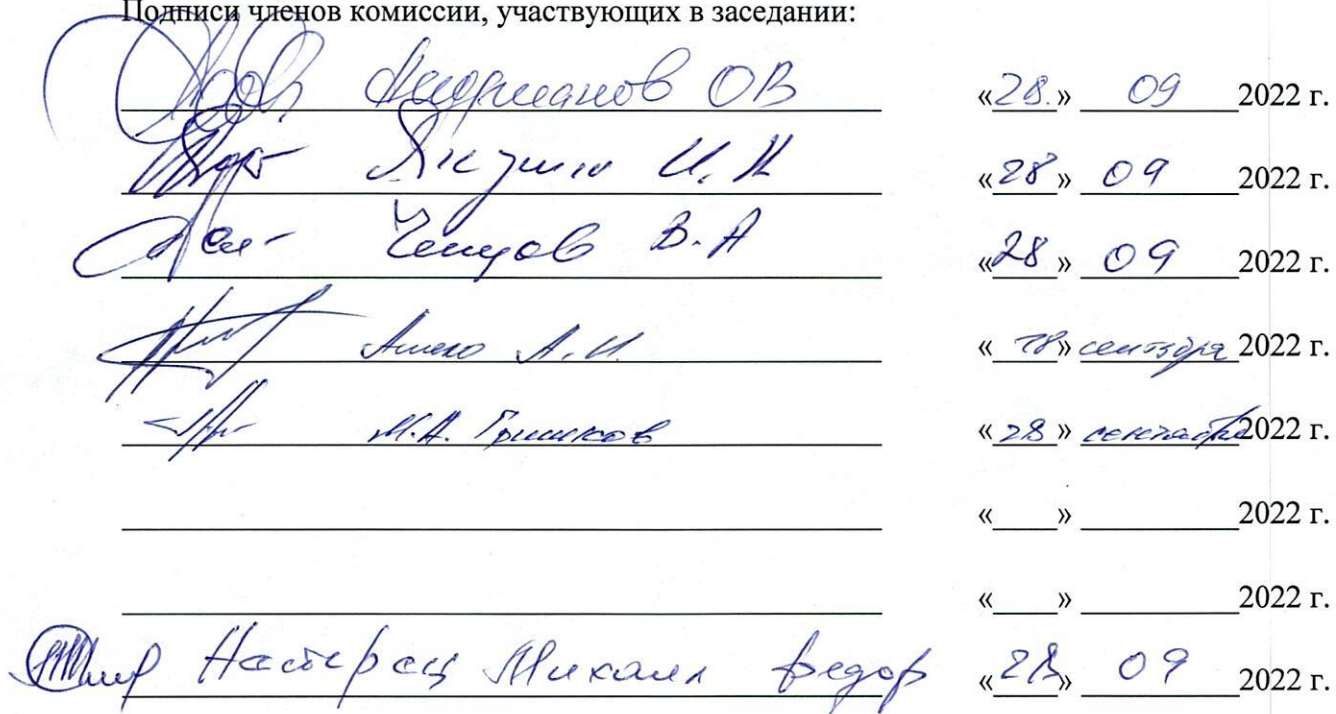 Подписи членов комиссии, участвующих в заседании:
Андрианов ОВ «28.» 09 2022 г.
И. Н «28» 09 2022 г.
В. А «28» 09 2022 г.
А. И. «28» сентября 2022 г.
М.А. Гришков «28» сентября 2022 г.
«____» ________ 2022 г.
«____» ________ 2022 г.
Михаил Федор «28» 09 2022 г.